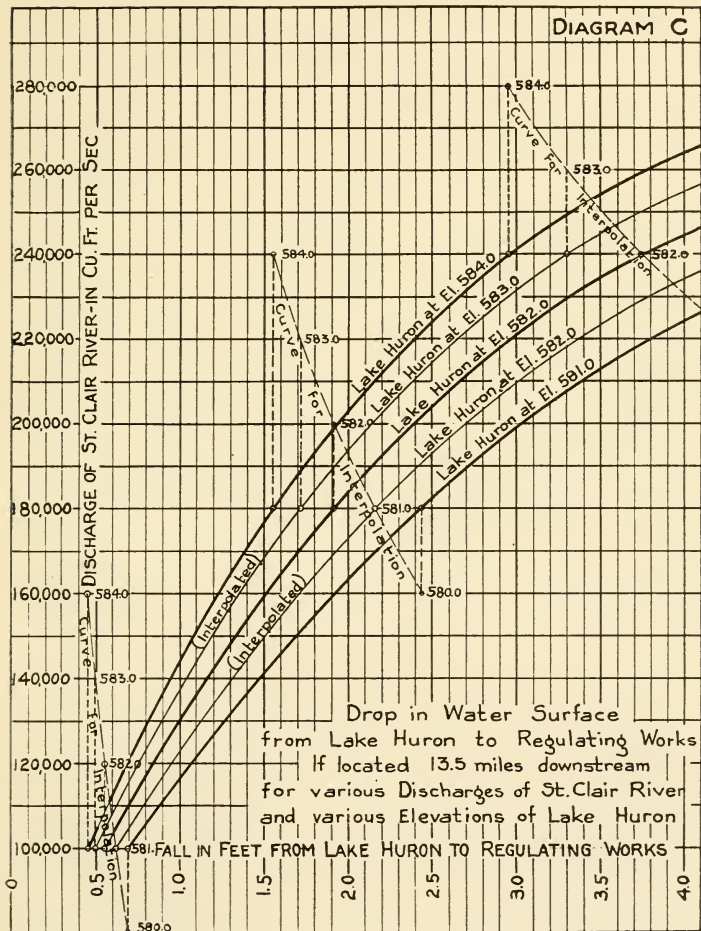 DIAGRAM C
280,000
260,000
240,000
220,000
200,000
180,000
160,000
140,000
120,000
100,000
DISCHARGE OF ST. CLAIR RIVER-IN CU. FT. PER SEC
584.0
583.0
582.0
Curve For Interpolation
584.0
583.0
582.0
581.0
580.0
Curve for Interpolation
584.0
583.0
582.0
581.
580.0
Curve for Interpolation
Lake Huron at El. 584.0
Lake Huron at El. 583.0
Lake Huron at El. 582.0
Lake Huron at El. 582.0
Lake Huron at El. 581.0
(Interpolated)
(Interpolated)
Drop in Water Surface
from Lake Huron to Regulating Works
If located 13.5 miles downstream
for various Discharges of St. Clair River
and various Elevations of Lake Huron
FALL IN FEET FROM LAKE HURON TO REGULATING WORKS
0
0.5
1.0
1.5
2.0
2.5
3.0
3.5
4.0